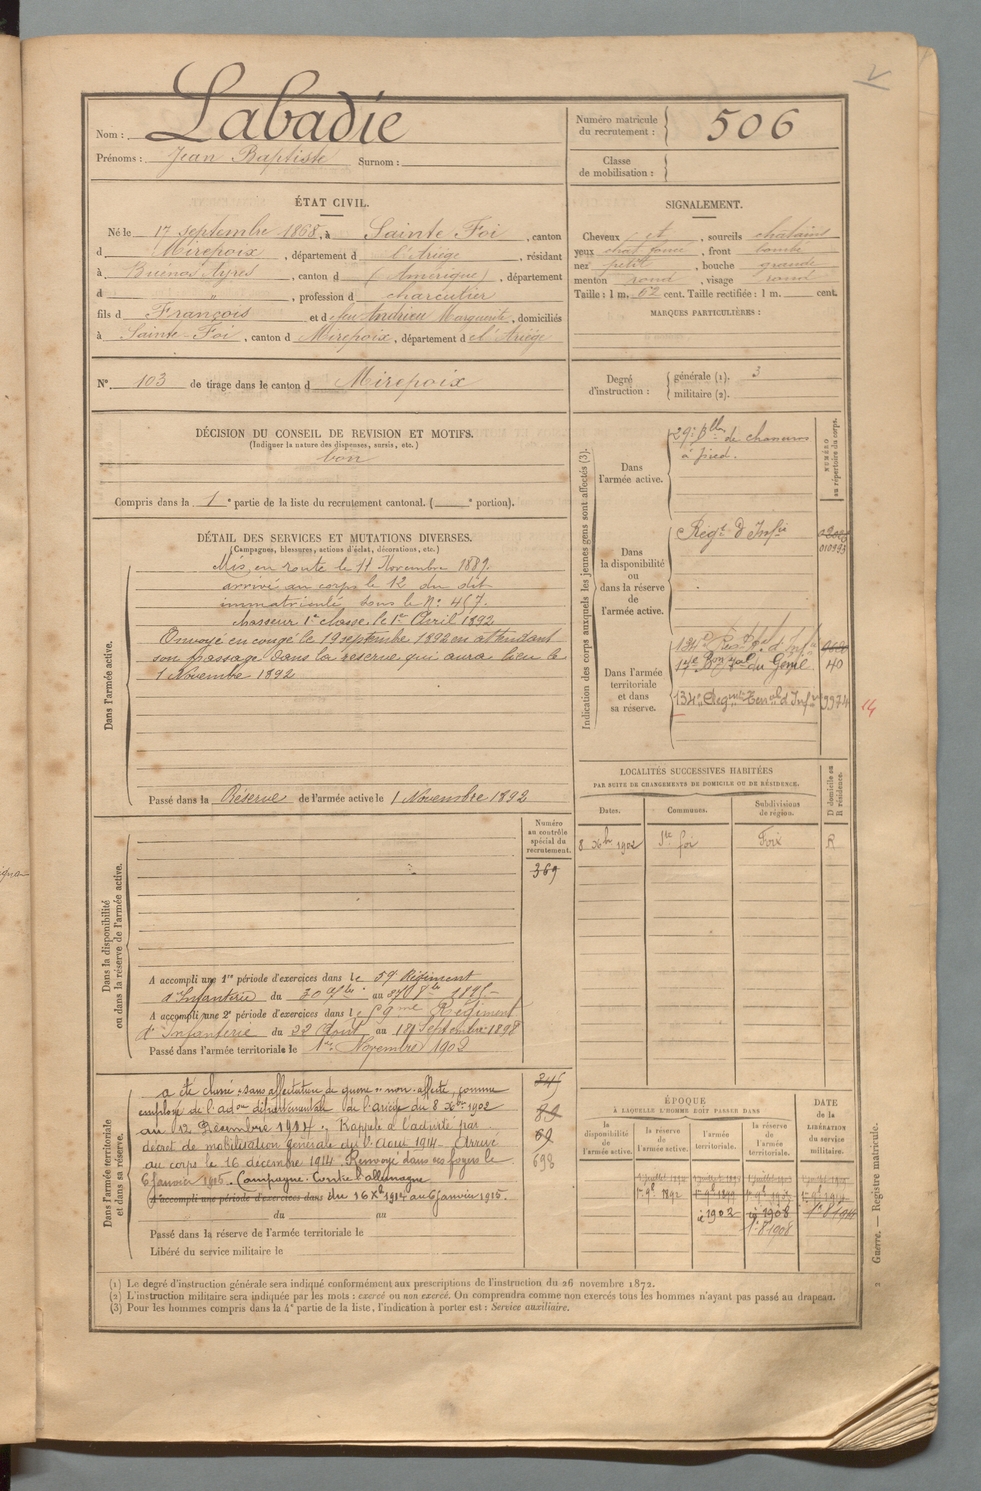 Nom : Labadie
Prénoms : Jean Baptiste Surnom :
Numéro matricule du recrutement : 506
Classe de mobilisation :
ÉTAT CIVIL.
Né le 17 Septembre 1868, à Sainte Foi, canton
d Mirepoix, département d l'Ariège, résidant
à Buenos Ayres, canton d (Amérique), département
d " , profession d charcutier
fils d François et d feu Andrieu Marguerite, domiciliés
à Sainte-Foi, canton d Mirepoix, département d l'Ariège
N° 103 de tirage dans le canton d Mirepoix
SIGNALEMENT.
Cheveux et , sourcils châtains
yeux , front bombé
nez petit , bouche grande
menton rond , visage rond
Taille : 1 m. 62 cent. Taille rectifiée : 1 m. cent.
MARQUES PARTICULIÈRES :
Degré d'instruction : générale (1). 3
militaire (2).
DÉCISION DU CONSEIL DE REVISION ET MOTIFS.
(Indiquer la nature des dispenses, sursis, etc.)
bon
Compris dans la 1 e partie de la liste du recrutement cantonal. ( e portion).
DÉTAIL DES SERVICES ET MUTATIONS DIVERSES.
(Campagnes, blessures, actions d'éclat, décorations, etc.)
Dans l'armée active.
Mis en route le 11 Novembre 1889.
arrivé au corps le 12 du dit
immatriculé sous le N° 457.
chasseur 1re classe le 1er Avril 1892
Envoyé en congé le 19 septembre 1892 en attendant
son passage dans la réserve qui aura lieu le
1 Novembre 1892
Passé dans la Réserve de l'armée active le 1 Novembre 1892
Indication des corps auxquels les jeunes gens sont affectés (3).
NUMÉRO au répertoire du corps.
Dans l'armée active.
29e Blln de chasseurs
à pied.
Dans la disponibilité ou dans la réserve de l'armée active.
Régt d'Infie
Dans l'armée territoriale et dans sa réserve.
134e Régt tal d'Infie
14e Bon tal du Génie 40
134e Régmt Terral d'Infie 9974
14
LOCALITÉS SUCCESSIVES HABITÉES
PAR SUITE DE CHANGEMENTS DE DOMICILE OU DE RÉSIDENCE.
Dates. Communes. Subdivisions de région. D domicile ou R résidence.
8 Xbre 1902 Ste foi Foix R
Dans la disponibilité ou dans la réserve de l'armée active.
Numéro au contrôle spécial du recrutement.
369
A accompli une 1re période d'exercices dans le 59 Régiment
d'Infanterie du 30 au 1895
A accompli une 2e période d'exercices dans le 59me Régiment
d'Infanterie du 22 Août au 18 Septembre 1898
Passé dans l'armée territoriale le 1er Novembre 1902
Dans l'armée territoriale et dans sa réserve.
a été classé "sans affectation" de guerre "non affecté", comme
employé de l'adon départementale de l'ariège du 8 Xbre 1902
au 12 Décembre 1914. Rappelé à l'activité par
décret de mobilisation générale du 1er Août 1914 - Arrivé
au corps le 16 décembre 1914. Renvoyé dans ses foyers le
6 janvier 1915. Campagne Contre l'allemagne
A accompli une période d'exercices dans du 16 Xbre 1914 au 6 janvier 1915.
du au
Passé dans la réserve de l'armée territoriale le
Libéré du service militaire le
345
69
698
ÉPOQUE
À LAQUELLE L'HOMME DOIT PASSER DANS
la disponibilité de l'armée active. la réserve de l'armée active. l'armée territoriale. la réserve de l'armée territoriale. DATE de la LIBÉRATION du service militaire.
1er 9bre 1892
1902 1908
(1) Le degré d'instruction générale sera indiqué conformément aux prescriptions de l'instruction du 26 novembre 1872.
(2) L'instruction militaire sera indiquée par les mots : exercé ou non exercé. On comprendra comme non exercés tous les hommes n'ayant pas passé au drapeau.
(3) Pour les hommes compris dans la 4e partie de la liste, l'indication à porter est : Service auxiliaire.
2 Guerre. — Registre matricule.